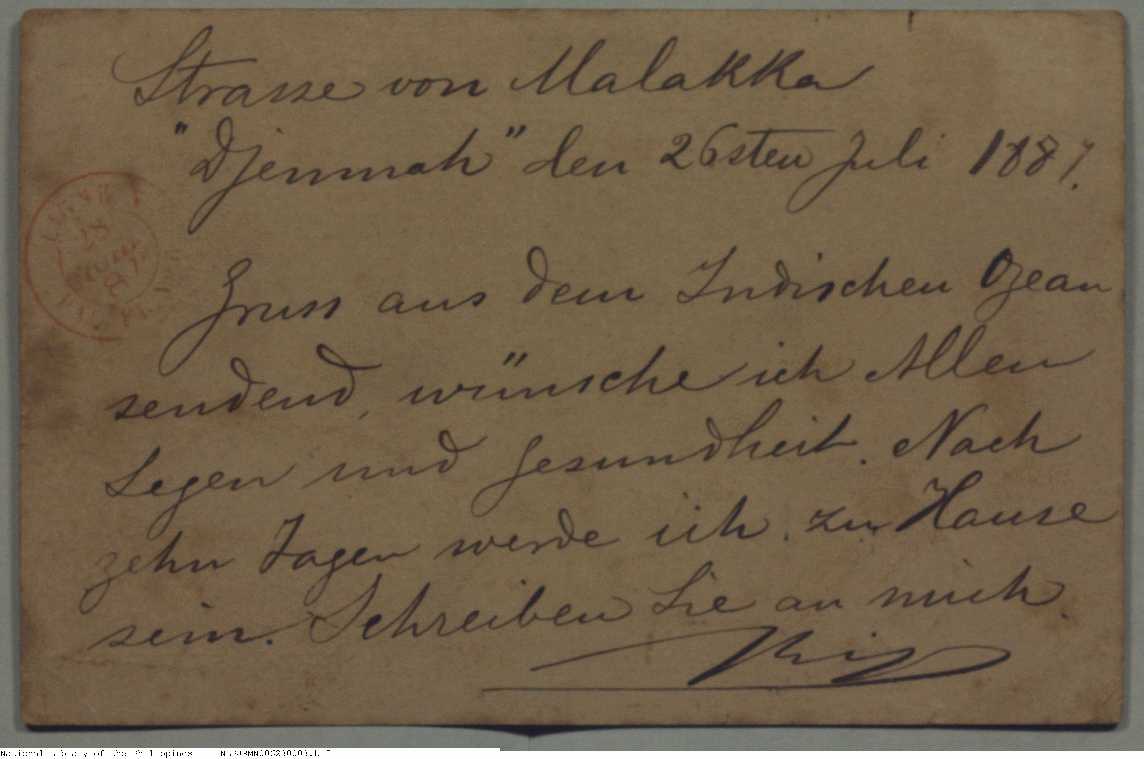 Strasse von Malakka
"Djemnah" den 26sten Juli 1887.
Gruss aus dem Indischen Ozean
sendend, wünsche ich Allen
Segen und Gesundheit. Nach
zehn Tagen werde ich zu Hause
sein. Schreiben Sie an mich.
National Library of the Philippines